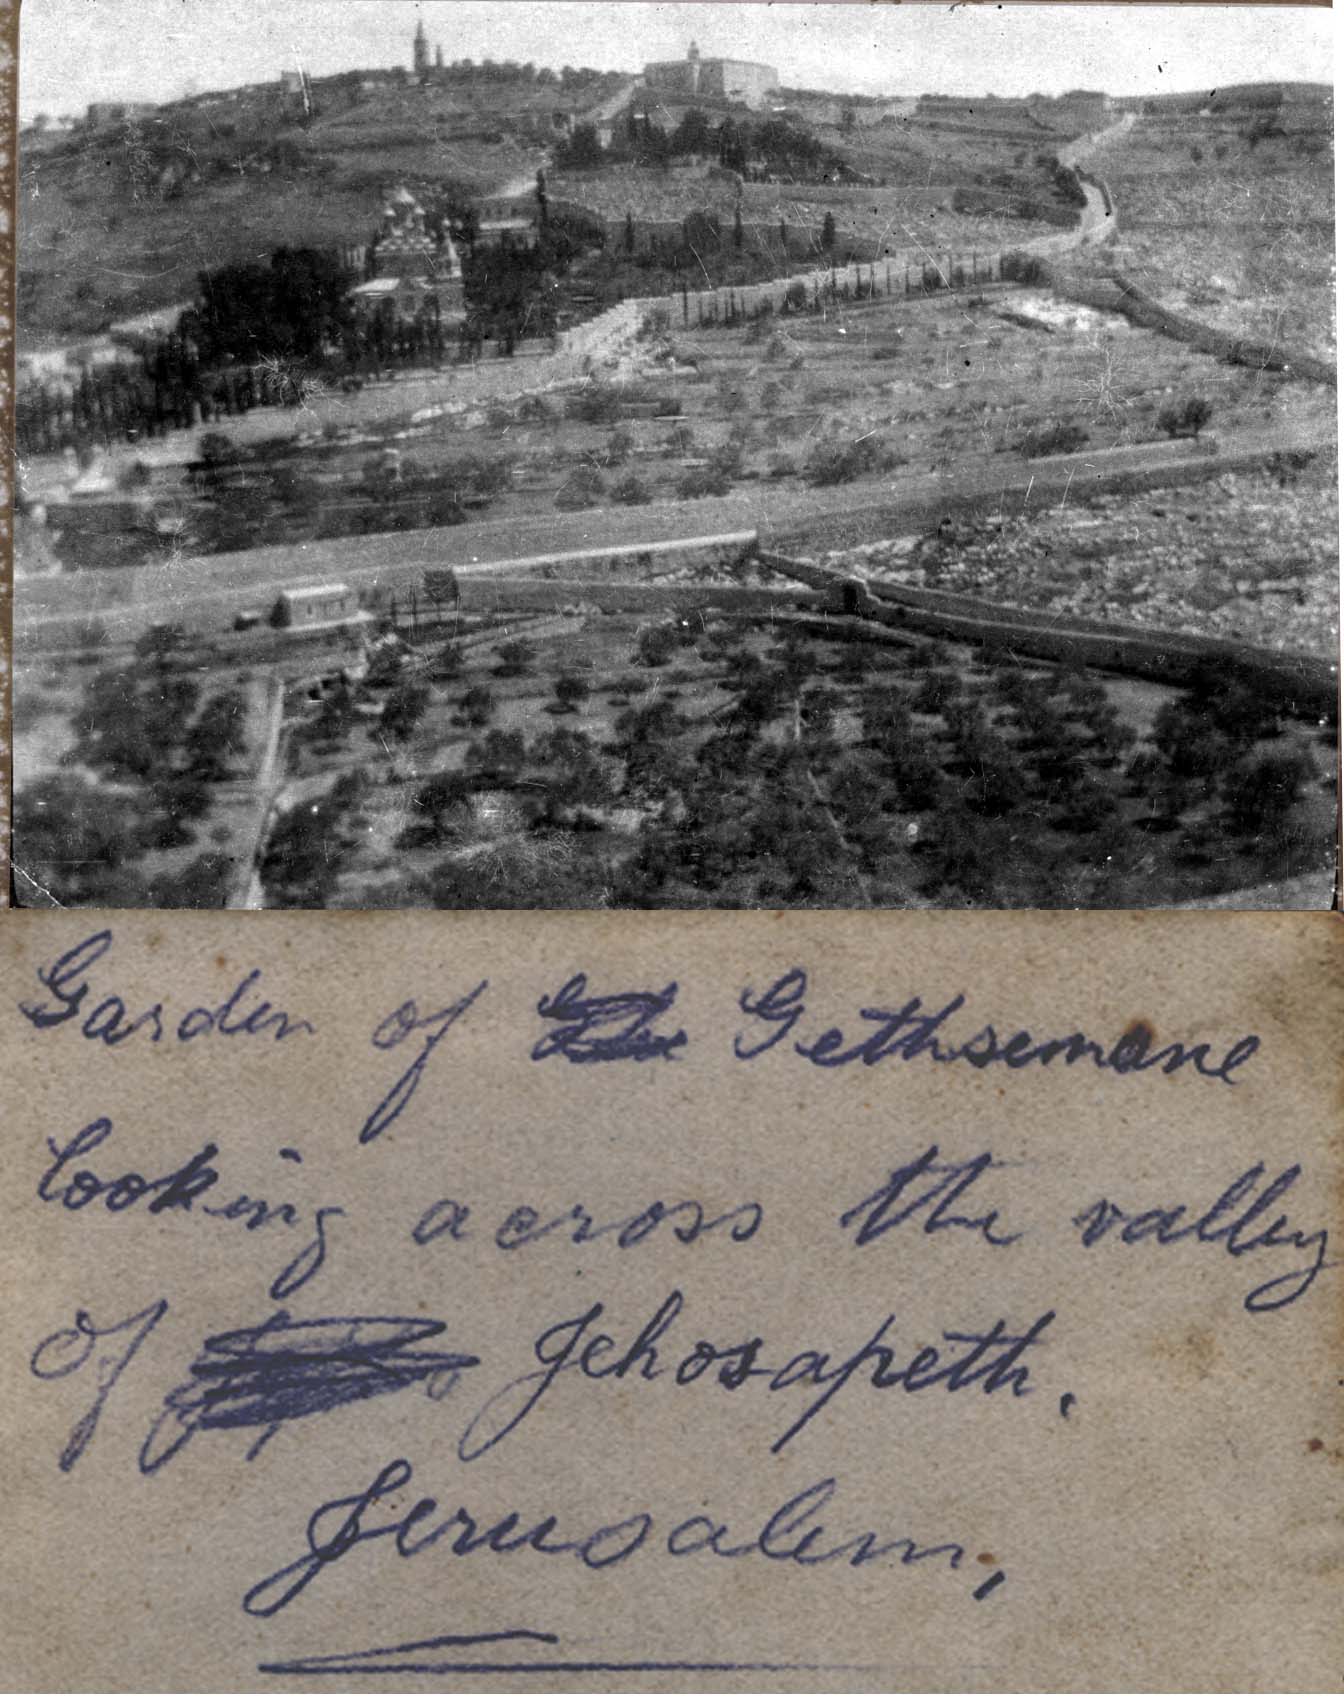 Garden of Gethsemane
looking across the valley
of Jehosapeth.
Jerusalem,